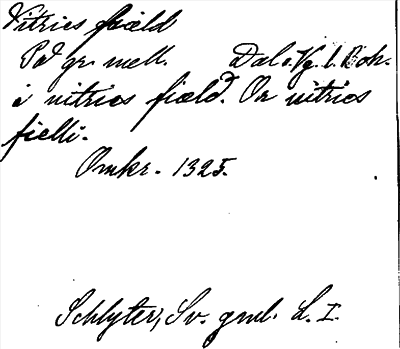 Vitries fiæld
På gr. mell. Dal o. Vg. l. Boh.
i vitrios fiæld. Or vitrios
fielli.
Omkr. 1325.
Schlyter, Sv. gml. L. I.